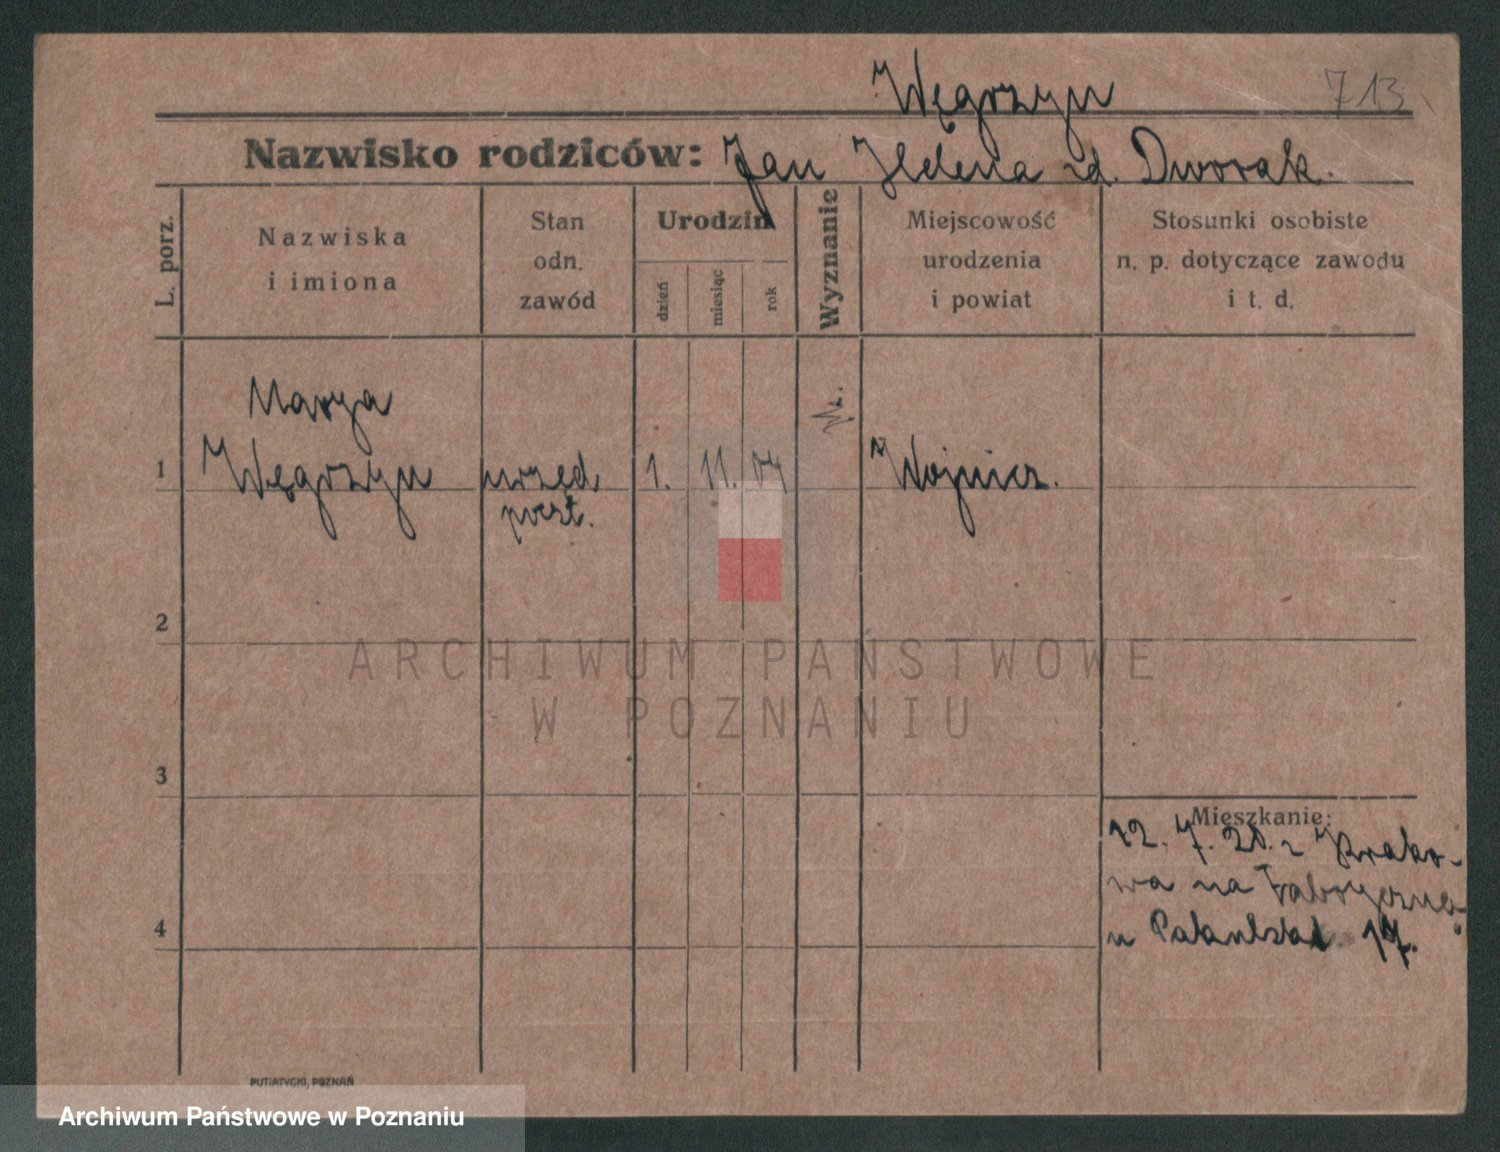 Węgrzyn 713
Nazwisko rodziców: Jan Helena zd. Dworak.
L. porz.
Nazwiska
i imiona
Stan
odn.
zawód
Urodzin
dzień
miesiąc
rok
Wyznanie
Miejscowość
urodzenia
i powiat
Stosunki osobiste
n. p. dotyczące zawodu
i t. d.
Marya
1 Węgrzyn urzęd. 1. 11. 04 Wojnicz.
poczt.
2
ARCHIWUM PAŃSTWOWE
W POZNANIU
3
Mieszkanie:
12. 7. 20. z Krako-
wa na Fabryczną
u 17.
4
PUTIATYCKI, POZNAŃ
Archiwum Państwowe w Poznaniu